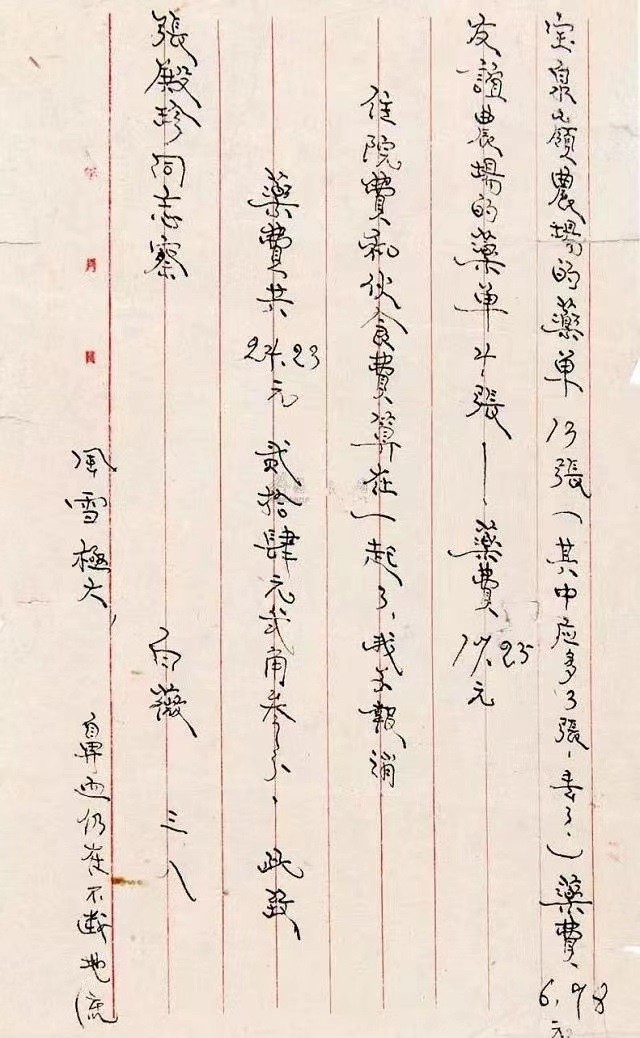 宝泉岭農場的藥单13張（其中应多3張，丢了，）藥費6.98元
友誼農場的藥单4張——藥費17.25元
住院費和伙食費算在一起了，我不報銷
藥費共24.23元 貳拾肆元弍角叁分，此致
張殿珍同志察
白薇 三、八
風雪極大， 鼻血仍在不断地流